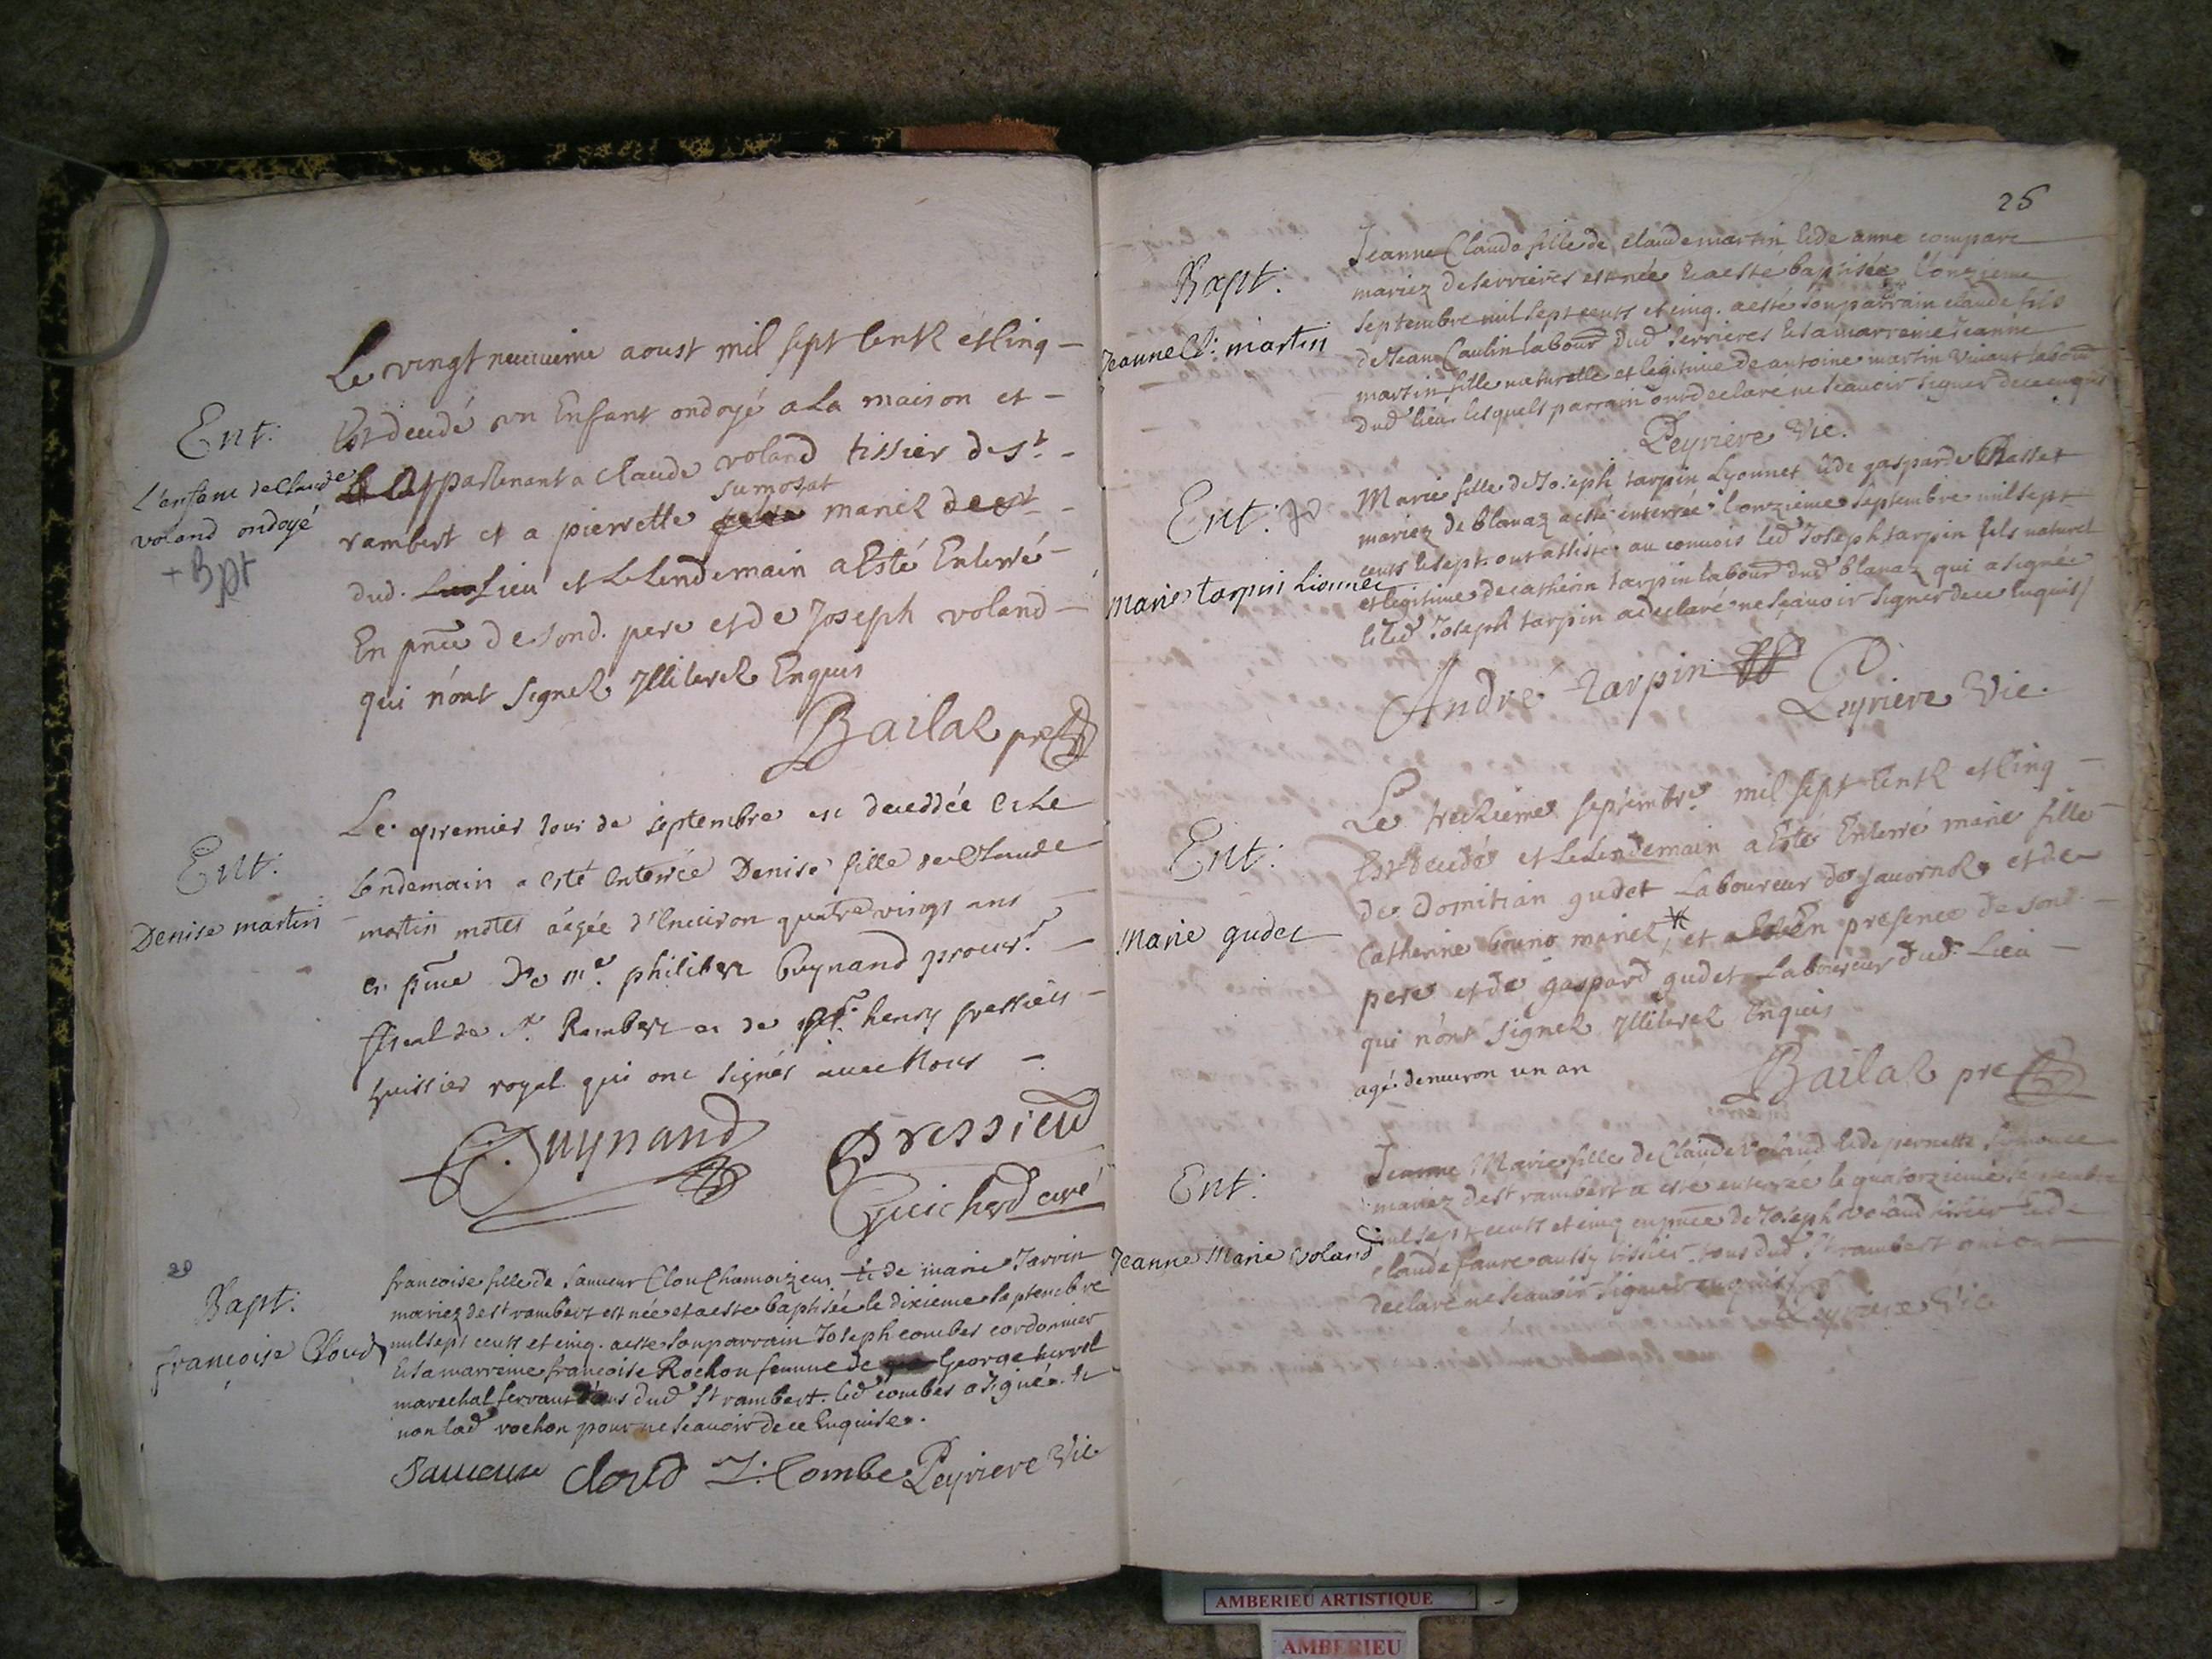 Ent:
L'enfant de Claude
voland ondoyé
+ Bpt
Le vingt neuvieme aoust mil sept centz et cinq
Est decedé un Enfant ondoyé a La maison et
appartenant a Claude voland tissier de St
rambert et a pierrette sumosat mariez
dud. Lieu et Le Lendemain a Esté Enterré
En pnce de sond. pere et de Joseph voland
qui n'ont signez Illiterez Enquis
Bailaz pre
Ent:
Denise martin
Le premier Jour de septembre est deceddée et Le
Lendemain a esté enterrée Denise fille de Claude
martin agée d'Environ quatre vingt ans
en pnce De me. philibert Guynand procur.
fiscal de St. Rambert et de henry pressieu
huissier royal qui ont signés avec Nous
Guynand Pressieu
Guichard curé
29
Bapt:
francoise Cloud
francoise fille de sauveur Clou Chamoizeur et de marie Tarvin
mariez de st rambert est née et a esté baptisée le dixieme septembre
mil sept cents et cinq. a esté son parrain Joseph combes cordonnier
et sa marreine francoise Rochon femme de George
marechal servant dud St rambert. led combes a signé et
non lad rochon pour ne scavoir de ce Enquise.
Sauveur Cloud J: Combe Peyriere Vic
26
Bapt:
Jeanne Cl: martin
Jeanne Claude fille de claude martin et de anne compare
mariez de serrieres est née et a esté baptisée l'onzieme
septembre mil sept cents et cinq. a esté son parrain claude fils
de Jean Caulin labour dud serrieres et sa marreine Jeanne
martin fille naturelle et legitime de antoine martin vivant labour
dud lieu lesquels parrain ont declaré ne scavoir signer de ce enquis
Peyriere Vic.
Ent:
Marie tarpin Lionnet
Marie fille de Joseph tarpin Lyonnet et de gasparde Chasset
mariez de blanaz a esté enterrée l'onzieme septembre mil sept
cents ont assisté au convois led Joseph tarpin fils naturel
et legitime de catherin tarpin labour dud blanaz qui a signé
et led Joseph tarpin a declaré ne sçavoir signer de ce enquis
André tarpin Peyriere Vic.
Ent:
Marie gudet
Le treizieme septembre mil sept centz et cinq
Est decedé et Le Lendemain a Esté Enterré marie fille
de Domitian gudet Laboureur de Javornoz et de
Catherine bouno mariez et En presence de sond.
pere et de gaspard gudet Laboureur dud. Lieu
qui n'ont signez Illiterez Enquis
agé denviron un an
Bailaz pre
Ent:
Jeanne Marie Voland
Jeanne Marie fille de Claude Voland et de pernette
mariez de st rambert a esté enterrée le quatorzieme septembre
mil sept cents et cinq en pnce de Joseph voland tissier et de
claude faure aussy tissier tous dud St rambert qui ont
declaré ne scavoir signer enquis
Peyriere Vic
AMBERIEU ARTISTIQUE
AMBERIEU